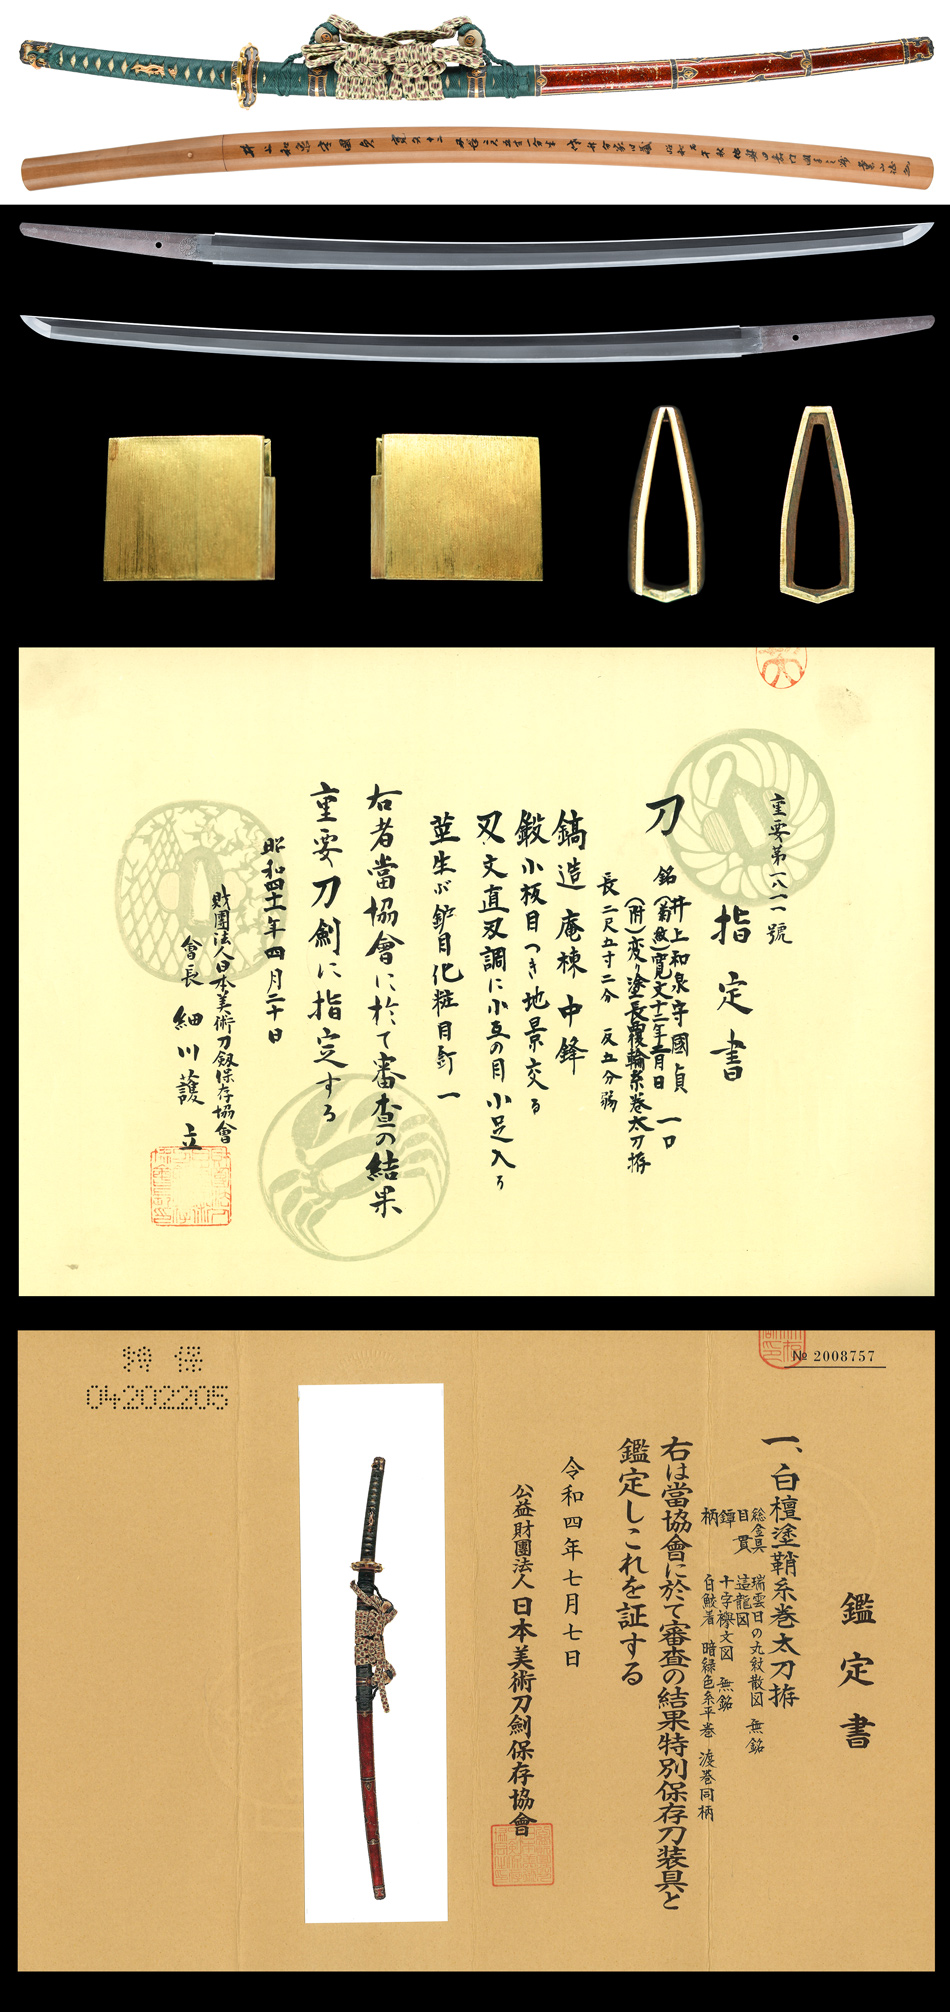 井上和泉守國貞
重要第一八一一號
指定書
刀
銘 井上和泉守國貞 一口
(菊紋)寛文十二年二月日
(附)変り塗長覆輪糸巻太刀拵
長 二尺五寸二分 反五分弱
鎬造 庵棟 中鋒
鍛小板目つき地景交る
刃文直刃調に小互の目小足入る
茎生ぶ鑢目化粧目釘一
右者當協會に於て審査の結果
重要刀剣に指定する
昭和四十一年四月二十日
財團法人日本美術刀剱保存協會
會長 細川護立
特保
04202205
№ 2008757
鑑定書
一、白檀塗鞘糸巻太刀拵
総金具 瑞雲日の丸紋散図 無銘
目貫 這龍図
鐔 十字襷文図 無銘
柄 白鮫着 暗緑色糸平巻 渡巻同柄
右は當協會に於て審査の結果特別保存刀装具と
鑑定しこれを証する
令和四年七月七日
公益財團法人日本美術刀劍保存協會